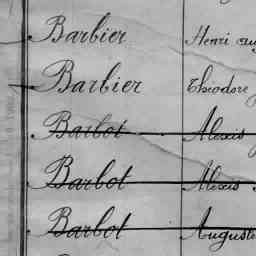 Barbier Henri
Barbier Théodore
Barbot Alexis
Barbot Alexis
Barbot Auguste